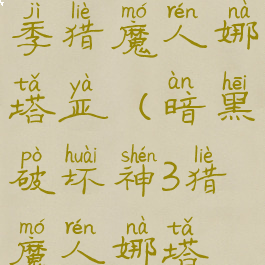 jì liè mó rén nà
季猎魔人娜
tǎ yà àn hēi
塔亚(暗黑
pò huài shén liè
破坏神3猎
mó rén nà tǎ
魔人娜塔